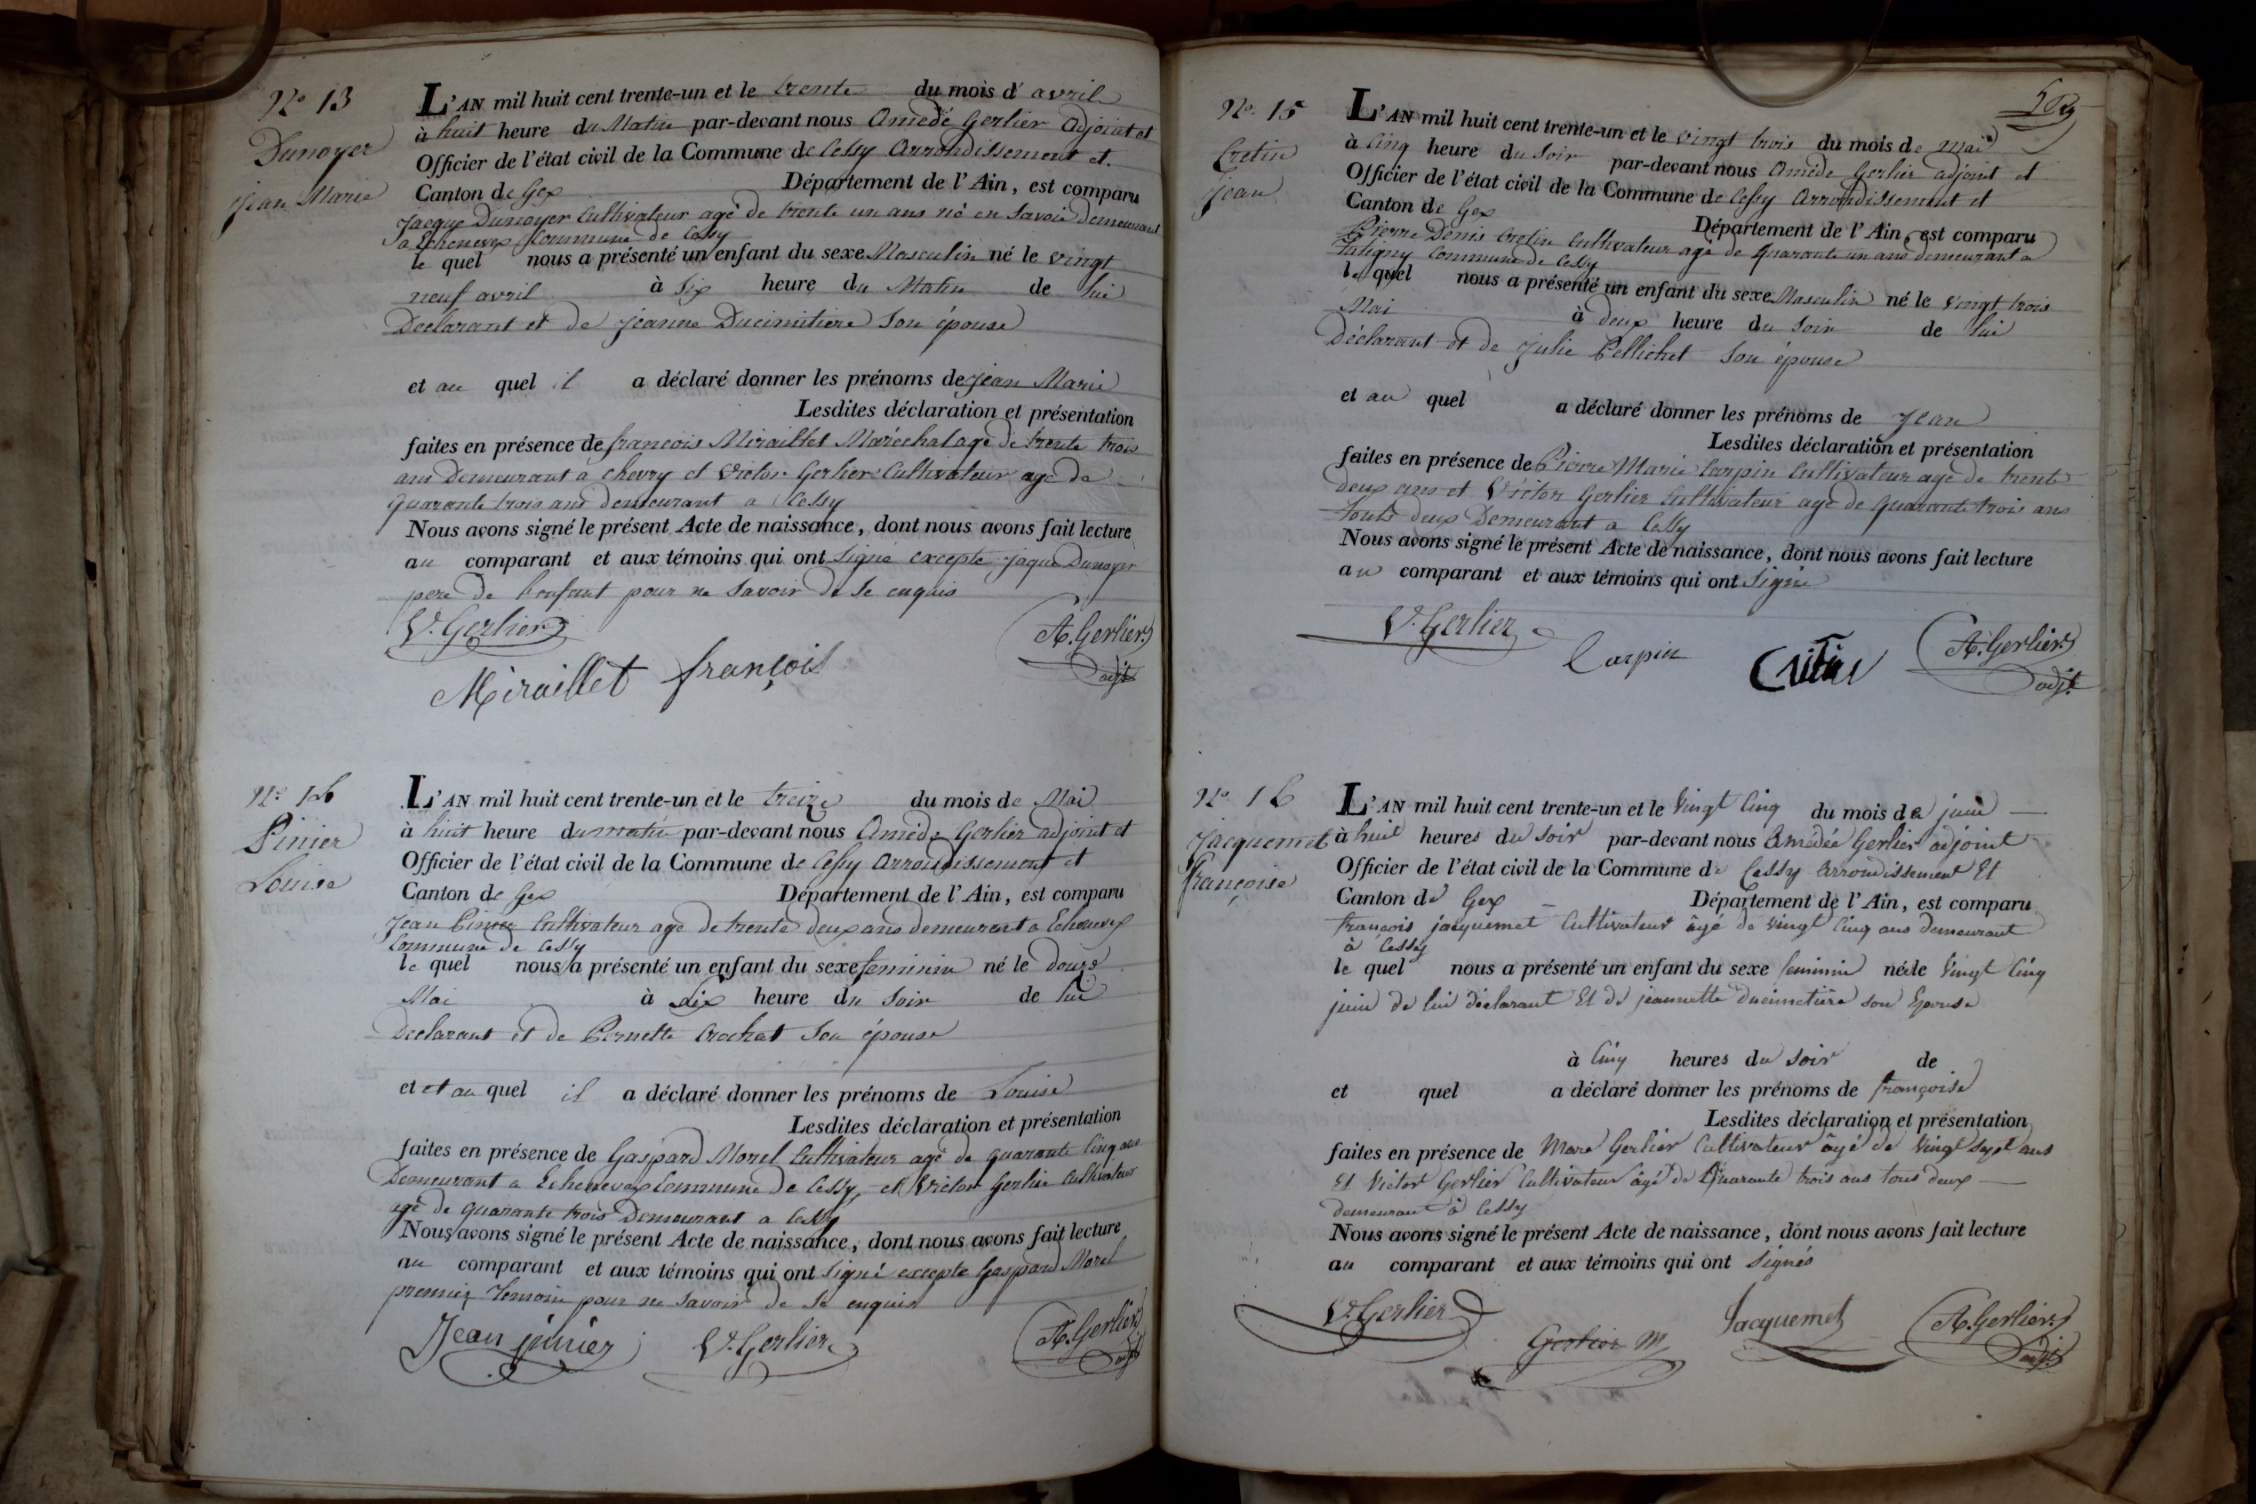 N.o 13
Dunoyer
jean Marie
L'AN mil huit cent trente-un et le trente du mois d' avril
à huit heure du Matin par-devant nous Amédé Gerlier adjoint et
Officier de l'état civil de la Commune de Cessy Arrondissement et
Canton de Gex Département de l'Ain, est comparu
Jacque Dunoyer Cultivateur agé de trente un ans né en Savoie demeurant
a Echenevex Commune de Cessy
le quel nous a présenté un enfant du sexe Masculin né le vingt
neuf avril à six heure du Matin de lui
Declarant et de jeanne Ducimitiere son épouse
et au quel il a déclaré donner les prénoms de jean Marie
Lesdites déclaration et présentation
faites en présence de francois Miraillet Maréchal agé de trente trois
ans Demeurant a Chevry et Victor Gerlier Cultivateur agé de
quarante trois ans demeurant a Cessy
Nous avons signé le présent Acte de naissance, dont nous avons fait lecture
au comparant et aux témoins qui ont signé excepte jaque Dunoyer
pere de lenfant pour ne savoir de ce enquis
V. Gerlier
A. Gerlier
adjt
Miraillet françois
N.o 14
Pinier
Louise
L'AN mil huit cent trente-un et le treize du mois de Mai
à huit heure du matin par-devant nous Amédé Gerlier adjoint et
Officier de l'état civil de la Commune de Cessy Arrondissement et
Canton de Gex Département de l'Ain, est comparu
Jean Pinier Cultivateur agé de trente deux ans demeurant a Echenevex
Commune de Cessy
le quel nous a présenté un enfant du sexe feminin né le douze
Mai à dix heure du soir de lui
Declarant et de Pernette Crochat son épouse
et et au quel il a déclaré donner les prénoms de Louise
Lesdites déclaration et présentation
faites en présence de Gaspard Morel Cultivateur agé de quarante cinq ans
Demeurant a Echenevex Commune de Cessy, et Victor Gerlier Cultivateur
agé de quarante trois Demeurant a Cessy
Nous avons signé le présent Acte de naissance, dont nous avons fait lecture
au comparant et aux témoins qui ont signé excepte Gaspard Morel
premier temoin pour ne savoir de ce enquis
Jean pinier V. Gerlier A. Gerlier
adjt
N.o 15
Cretin
jean
L'AN mil huit cent trente-un et le vingt trois du mois de mai
à cinq heure du soir par-devant nous Amédé Gerlier adjoint et
Officier de l'état civil de la Commune de Cessy Arrondissement et
Canton de Gex Département de l'Ain, est comparu
Pierre Denis Cretin Cultivateur agé de quarante un ans demeurant a
Tutigny Commune de Cessy
le quel nous a présenté un enfant du sexe Masculin né le vingt trois
Mai à deux heure du soir de lui
Déclarant et de julie Pellichet son épouse
et au quel a déclaré donner les prénoms de jean
Lesdites déclaration et présentation
faites en présence de Pierre Marie Carpin Cultivateur agé de trente
deux ans et Victor Gerlier Cultivateur agé de quarante trois ans
touts deux Demeurant a Cessy
Nous avons signé le présent Acte de naissance, dont nous avons fait lecture
au comparant et aux témoins qui ont signé
V. Gerlier Carpin A. Gerlier
adjt
N.o 16
Jacquemet
françoise
L'AN mil huit cent trente-un et le vingt cinq du mois de juin
à huit heures du soir par-devant nous Amédée Gerlier adjoint
Officier de l'état civil de la Commune de Cessy arrondissement Et
Canton de Gex Département de l'Ain, est comparu
francois jacquemet Cultivateur âgé de vingt cinq ans demeurant
à Cessy
le quel nous a présenté un enfant du sexe feminin née le vingt cinq
juin de lui déclarant Et de jeannette ducimetière son Epouse
à cinq heures du soir de
et quel a déclaré donner les prénoms de françoise
Lesdites déclaration et présentation
faites en présence de Marc Gerlier Cultivateur âgé de vingt sept ans
Et Victor Gerlier Cultivateur âgé de Quarante trois ans tous deux
demeurant à Cessy
Nous avons signé le présent Acte de naissance, dont nous avons fait lecture
au comparant et aux témoins qui ont signés
V. Gerlier Gerlier M Jacquemet A. Gerlier
adjt